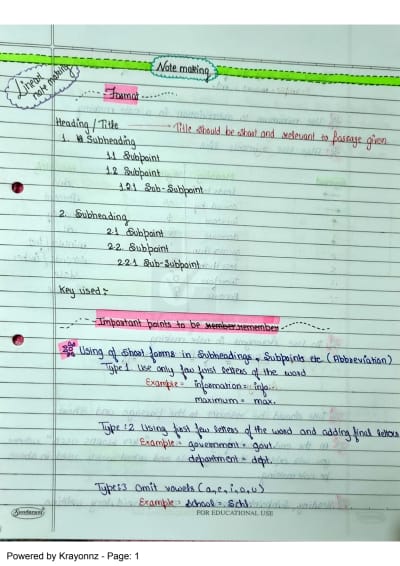 Note making
Linear note making
Format
Heading / Title - Title should be short and relevant to passage given.
1. Subheading
1.1 Subpoint
1.2 Subpoint
1.2.1 Sub-Subpoint
2. Subheading
2.1 Subpoint
2.2. Subpoint
2.2.1 Sub-Subpoint
Key used :-
Important points to be remember
Using of short forms in Subheadings, Subpoints etc (Abbreviation)
Type 1 Use only few first letters of the word
Example - information = info.
maximum = max.
Type :2 Using first few letters of the word and adding final letters
Example = government = govt.
department = dept.
Type :3 Omit vowels (a, e, i, o, u)
Example = School = Schl.
Sundaram
FOR EDUCATIONAL USE
Powered by Krayonnz - Page: 1